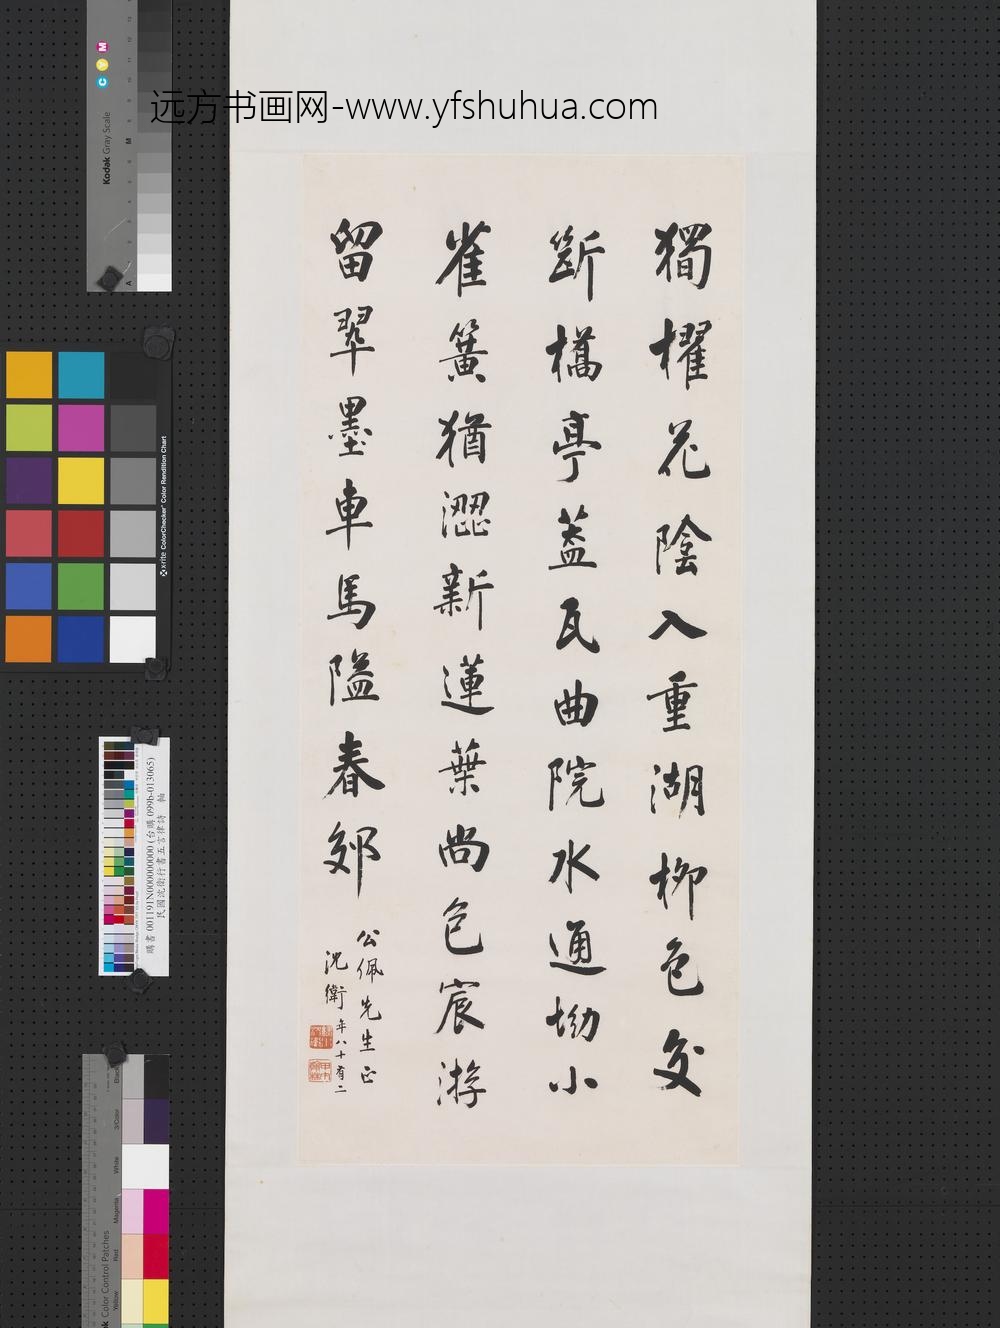 远方书画网-www.yfshuhua.com
獨櫂花陰入重湖柳色交
斷橋亭蓋瓦曲院水通坳小
雀簧猶澀新蓮葉尚包宸游
留翠墨車馬隘春郊
公佩先生正
沈衛年八十有二
Kodak Gray Scale
C Y M
x-rite ColorChecker Color Rendition Chart
購書 001191N000000000 (台購 099b-013065)
民國沈衛行書五言律詩 軸
Kodak Color Control Patches
Black
3/Color
White
Magenta
Red
Yellow